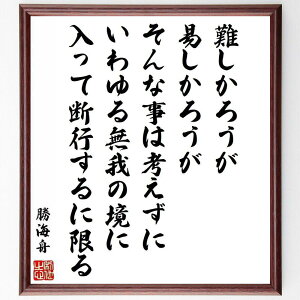 難しかろうが
易しかろうが
そんな事は考えずに
いわゆる無我の境に
入って断行するに限る
勝海舟